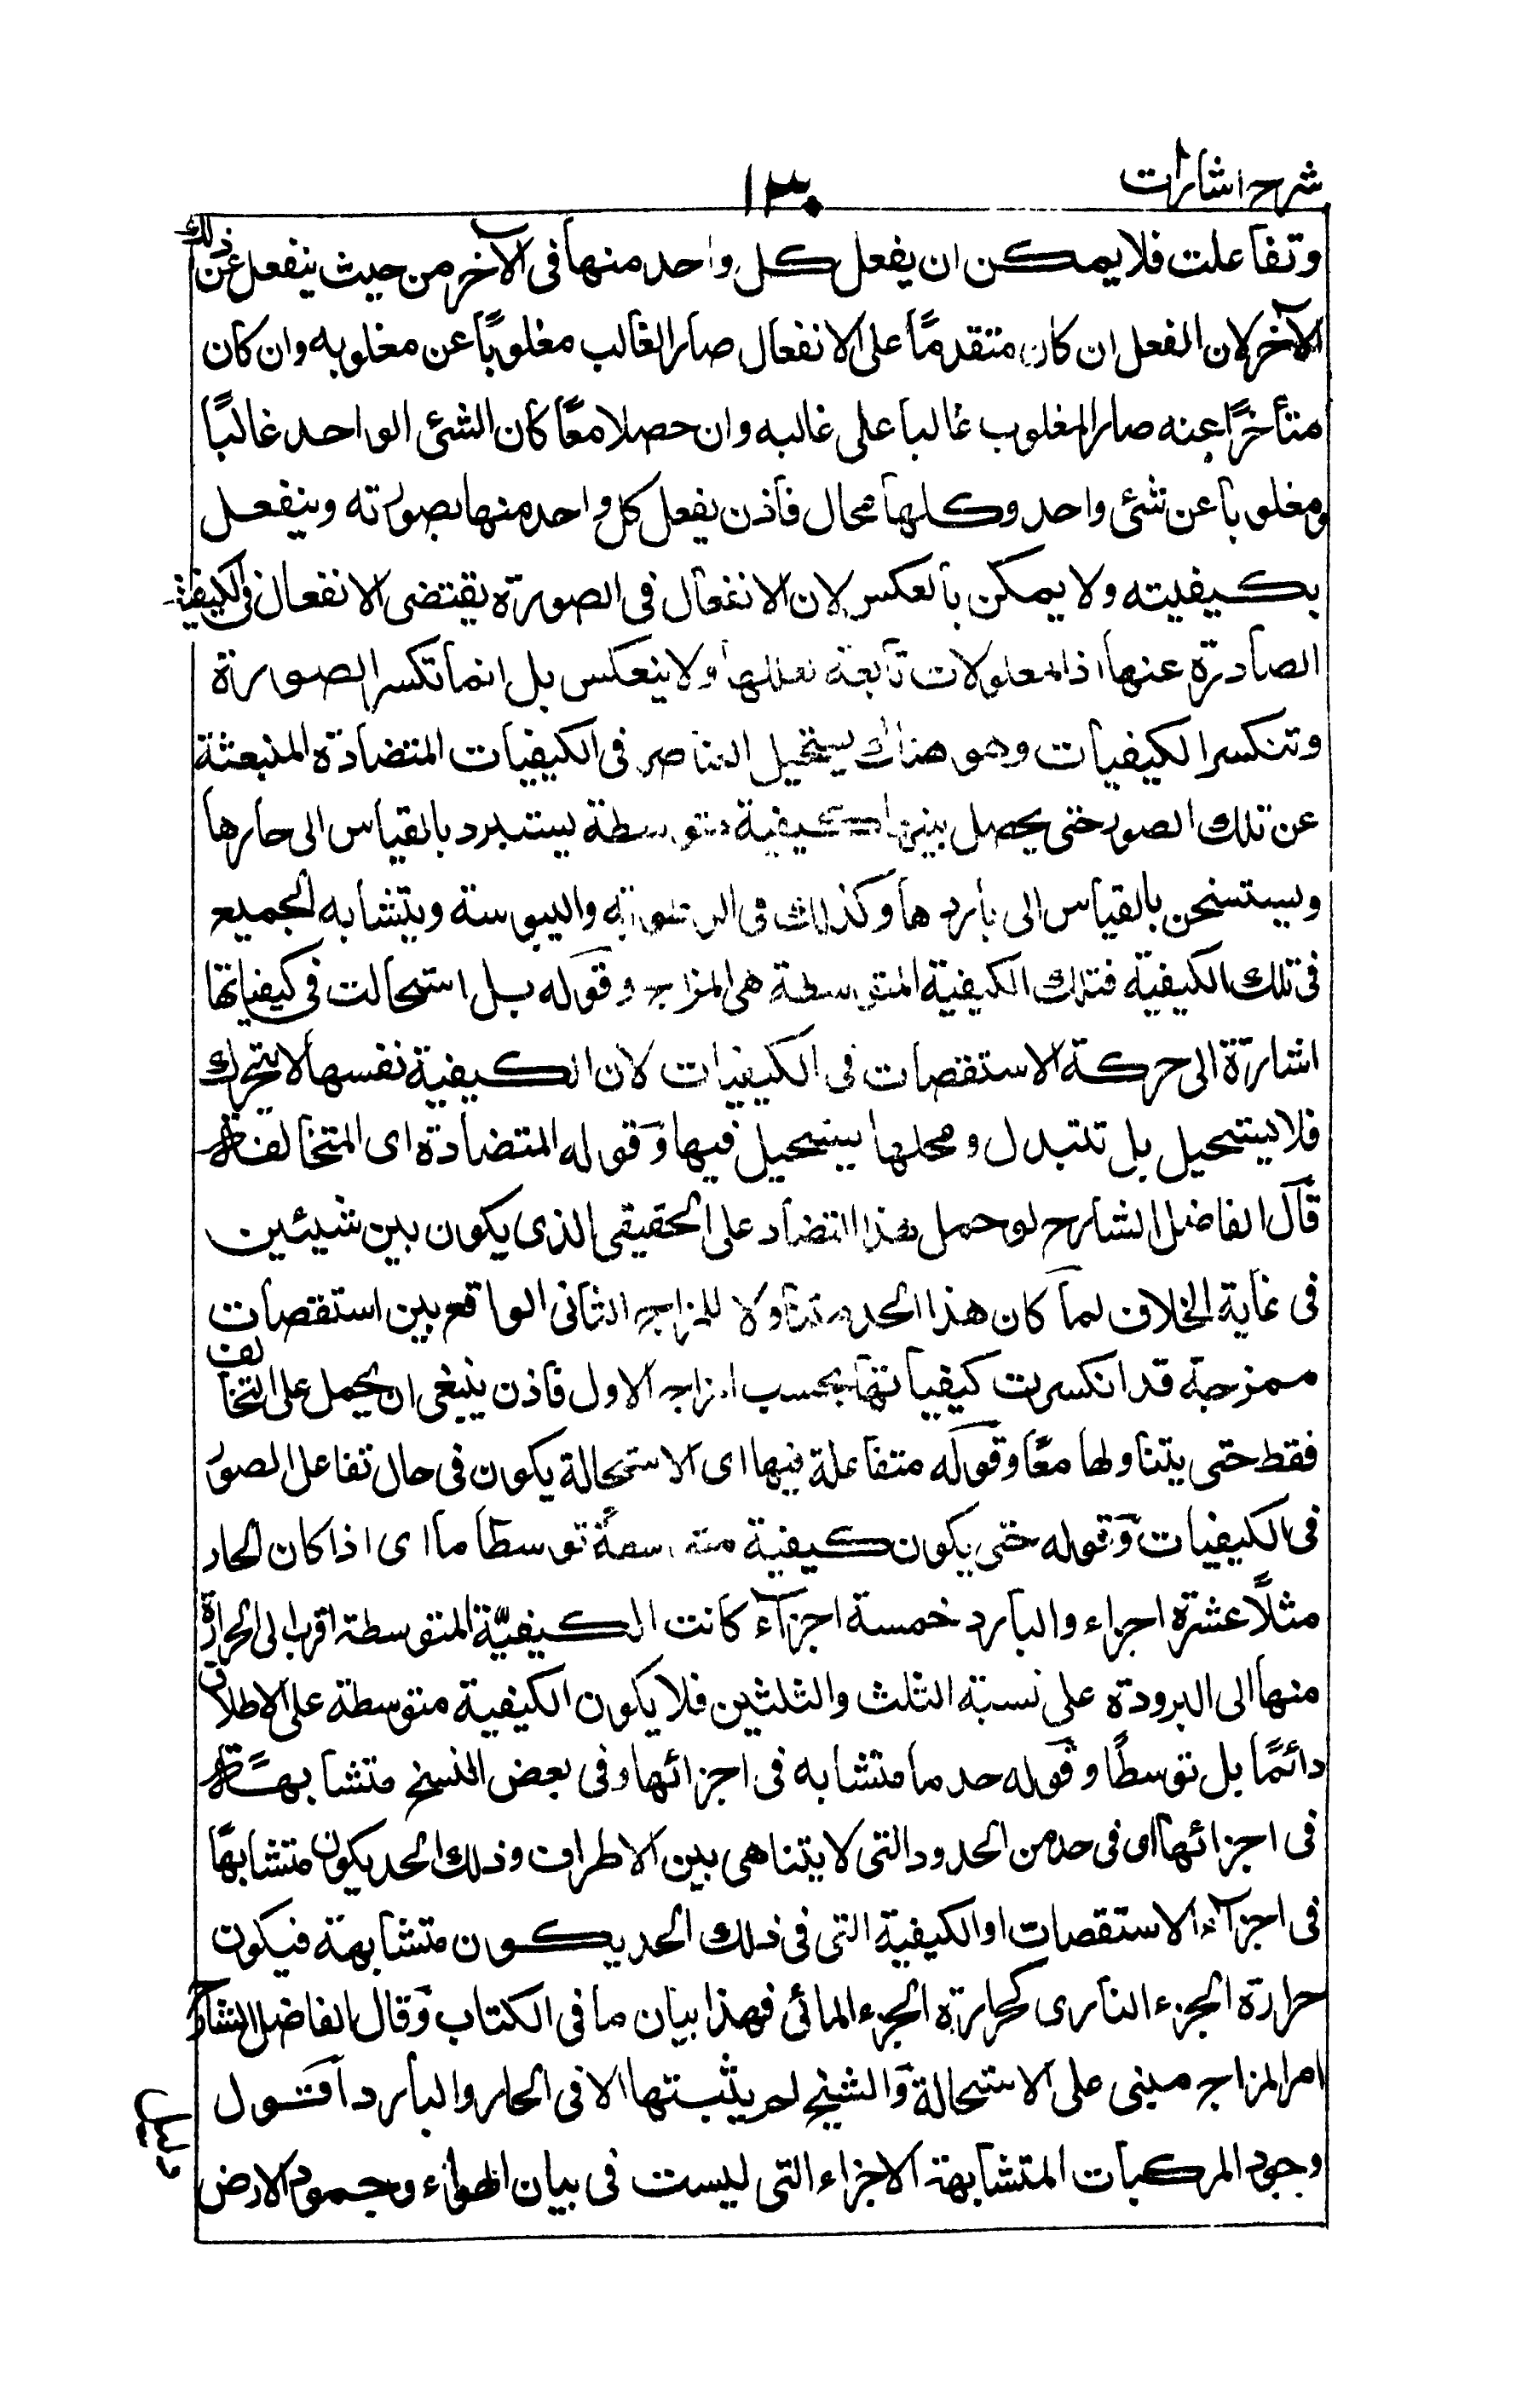 شرح اشارات
١٣٠
وتفاعلت فلا يمكن ان يفعل كل واحد منها فى الآخر من حيث ينفعل عن ذلك
الآخر لان الفعل ان كان متقدمًا على الانفعال صار الغالب مغلوبًا عن مغلوبه وان كان
متأخرًا عنه صار المغلوب غالبا على غالبه وان حصلا معًا كان الشئ الواحد غالبًا
ومغلوبا عن شئ واحد وكلها محال فاذن يفعل كل واحد منها بصورته وينفعل
بكيفيته ولا يمكن بالعكس لان الانفعال فى الصورة يقتضى الانفعال فى الكيفية
الصادرة عنها اذ المعلولات تابعة لعللها ولا ينعكس بل انما تكسر الصورة
وتنكسر الكيفيات وهو هناك يستحيل العناصر فى الكيفيات المتضادة المنبعثة
عن تلك الصور حتى يحصل بينها كيفية متوسطة يستبرد بالقياس الى حارها
ويستسخن بالقياس الى باردها وكذلك فى الرطوبة واليبوسة ويتشابه الجميع
فى تلك الكيفية فتلك الكيفية المتوسطة هى المزاج وقوله بل استحالت فى كيفياتها
اشارة الى حركة الاستقصات فى الكيفيات لان الكيفية نفسها لا يتحرك
فلا يستحيل بل تتبدل ومحلها يستحيل فيها وقوله المتضادة اى المتخالفة
قال الفاضل الشارح لو حمل هذا التضاد على الحقيقى الذى يكون بين شيئين
فى غاية الخلاف لما كان هذا الحد متناولا للمزاج الثانى الواقع بين استقصات
ممزجة قد انكسرت كيفياتها بحسب المزاج الاول فاذن ينبغى ان يحمل على التخالف
فقط حتى يتناولها معًا وقوله متفاعلة فيها اى الاستحالة يكون فى حال تفاعل الصور
فى الكيفيات وقوله حتى يكون كيفية متوسطة توسطا ما اى اذا كان الحار
مثلًا عشرة اجزاء والبارد خمسة اجزآء كانت الكيفيّة المتوسطة اقرب الى الحرارة
منها الى البرودة على نسبة الثلث والثلثين فلا يكون الكيفية متوسطة على الاطلاق
دائمًا بل توسطًا وقوله حد ما متشابه فى اجزائها وفى بعض النسخ متشابهة
فى اجزائها اى فى حد من الحدود التى لا يتناهى بين الاطراف وذلك الحد يكون متشابهًا
فى اجزآء الاستقصات او الكيفية التى فى ذلك الحد يكون متشابهة فيكون
حرارة الجزء النارى كحرارة الجزء المائى فهذا بيان ما فى الكتاب وقال الفاضل الشارح
امر المزاج مبنى على الاستحالة والشيخ لم يثبتها الا فى الحار والبارد اقول
وجود المركبات المتشابهة الاجزاء التى ليست فى بيان الهواء وجمود الارض
دليل